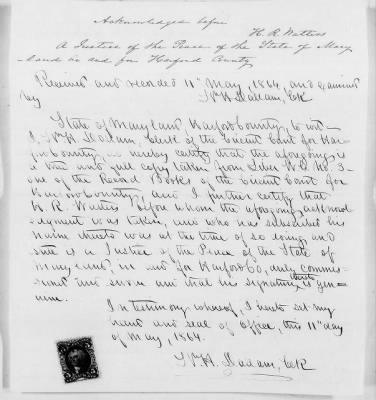 Acknowledged before
H. R. Watters
A Justice of the Peace of the State of Mary
land in and for Harford County
Received and recorded 11" May, 1864, and examined
by W H Dallam, Clk
State of Maryland Harford County, to wit
I, W H Dallam, Clerk of the Circuit Court for Har
ford County, do hereby certify that the aforegoing is
a true and full copy taken from Liber W.G. No. 3
one of the Record Books of the Circuit Court for
Harford County, and I further certify that
H R Watters before whom the aforegoing acknowl
edgment was taken, and who has subscribed his
name thereto was at the time of so doing and
still is a Justice of the Peace of the State of
Maryland, in and for Harford Co, duly commis
sioned and sworn and that his signature thereto is gen
uine.
In testimony whereof, I hereto set my
hand and seal of Office, this 11" day
of May, 1864.
W. H. Dallam, Clk